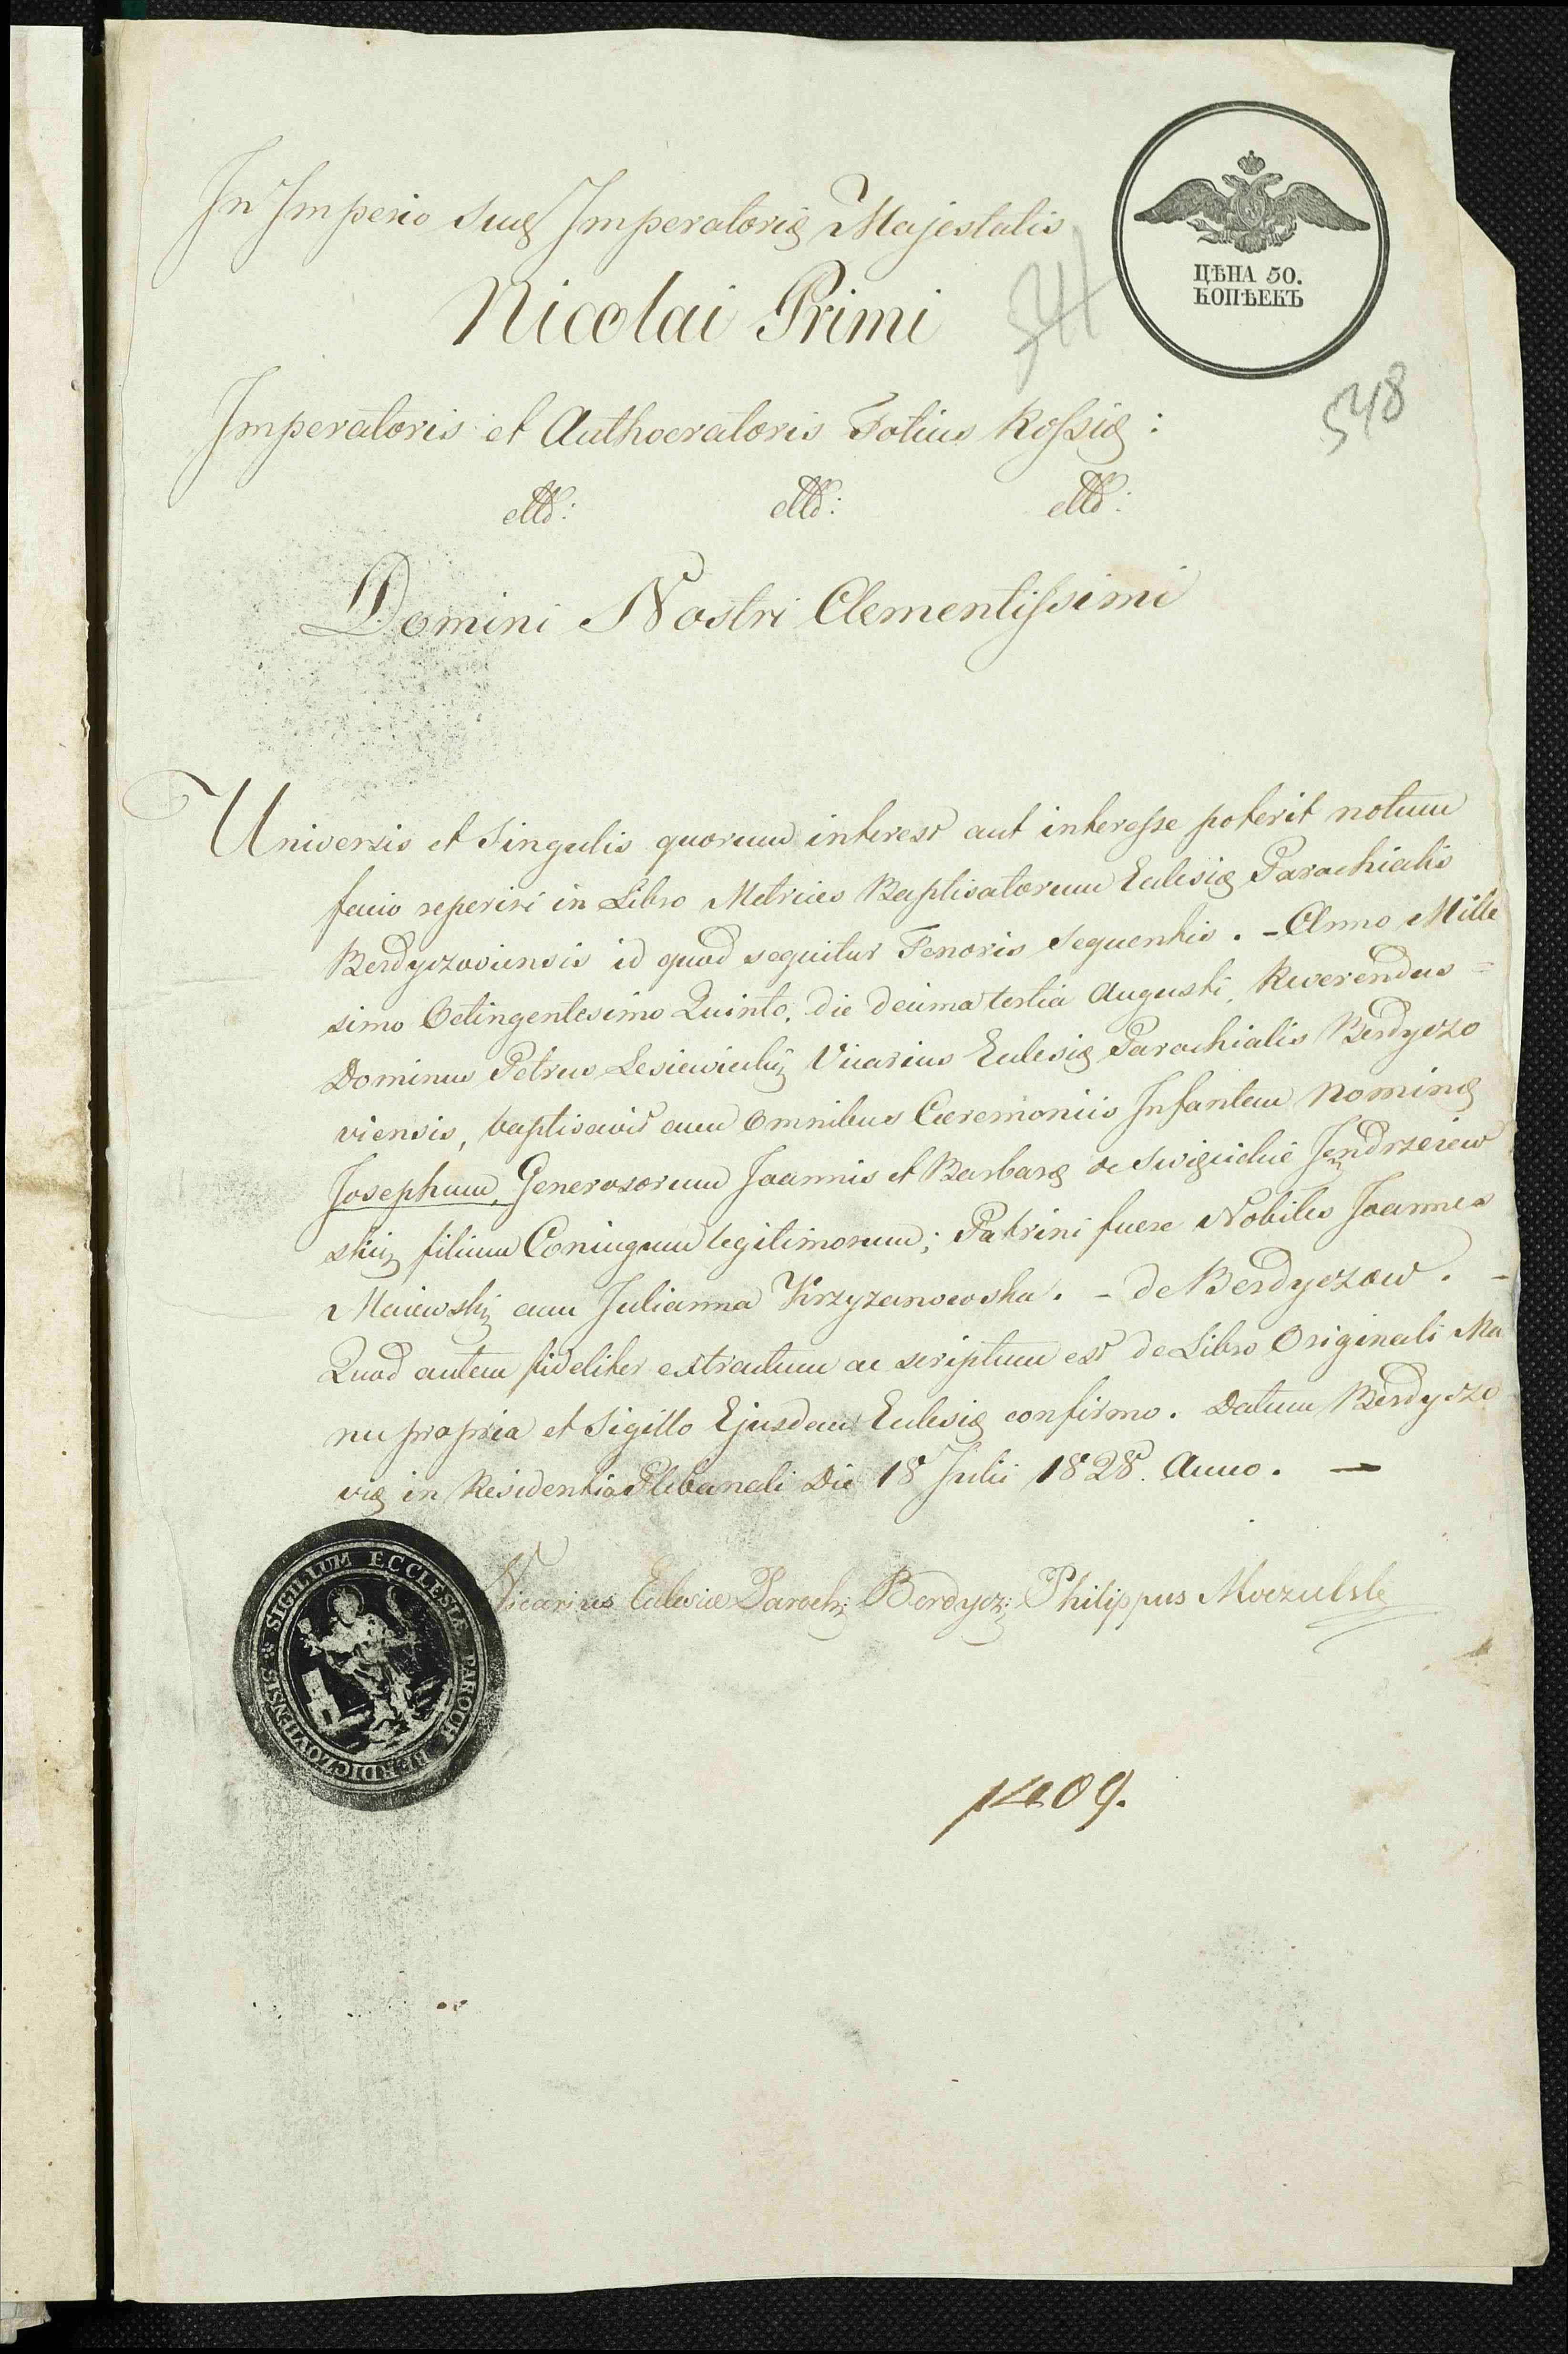 In Imperio Suæ Imperatoriæ Majestatis
Nicolai Primi
ЦѢНА 50.
КОПѢЕКЪ
544
548
Imperatoris et Authocratoris Totius Rossiæ :
Domini Nostri Clementissimi
Universis et Singulis quorum interest aut interesse poterit notum
facio reperiri in Libro Metrices Baptisatorum Eclesiæ Parachialis
Berdyczoviensis id quod sequitur Tenoris Sequentis . - Anno Mille
simo Octingentesimo Quinto, die decima tertia Augusti, Reverendus =
Dominus Petrus Lesiewicki Vicarius Eclesiæ Parachialis Berdyczo
viensis, baptisavit cum omnibus Cæremoniis Infantem Nominæ
Josephum, Generosorum Joannis et Barbaræ de Swięcickie Jendrzeiew
skij filium Coniugum legitimorum; Patrini fuere Nobiles Joannes
Maiewskij cum Julianna Krzyzanowska . - de Berdyczow . -
Quod autem fideliter extractum ac scriptum est de Libro Originali Ma
nu propria et Sigillo Ejusdem Eclesiæ confirmo . Datum Berdyczo
viæ in Residentia Plebanali Die 18 Julii 1828. Anno . —
Vicarius Eclesiæ Paroch: Berdycz: Philippus
SIGILLUM ECCLESIÆ PAROCH BERDICZOVIENSIS
1409.